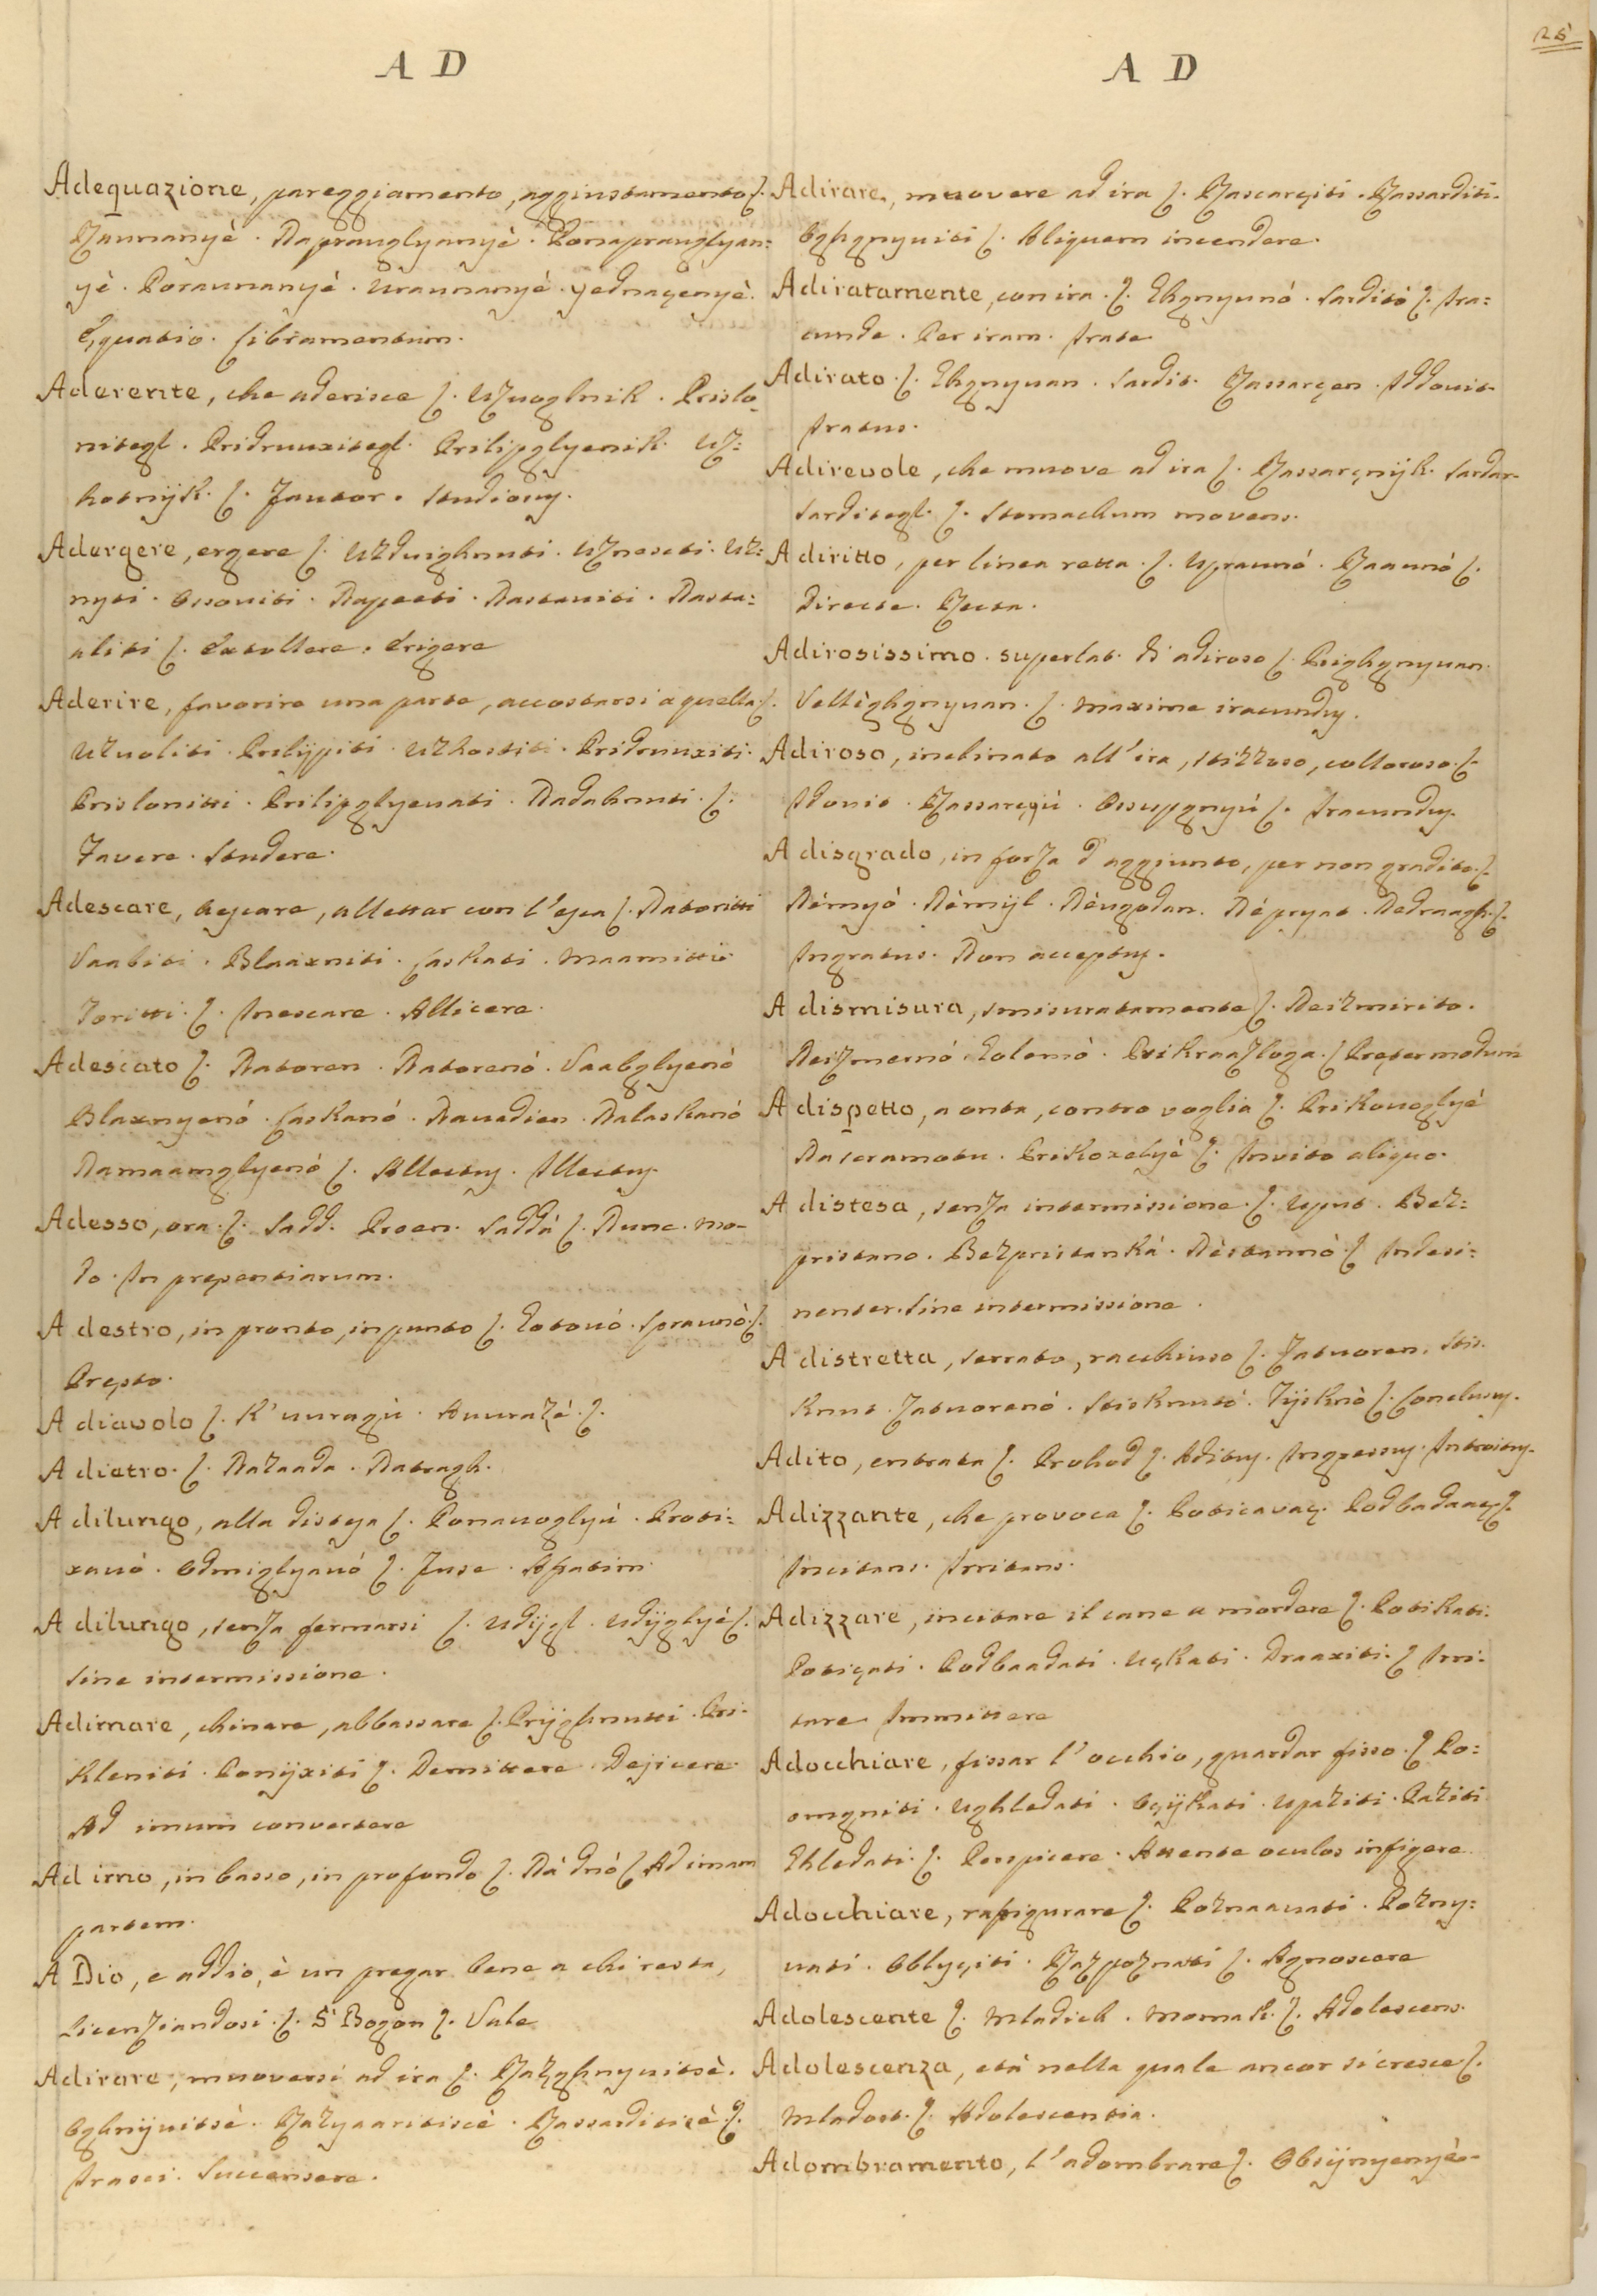 25
A D
Adequazione, pareggiamento, aggiustamento ſ.
Raunnanyè . Napraulglyanyè . Ponaprauglyan=
yè . Poraunanyè . Uraunnanyè . yednaçenyè.
Ęquatio . Libramentum.
Aderente, che aderisce ſ. Uzuoglnik . Prislo
nitegl . Pridruuxitegl . Prilipglyenik . Uz=
hotnijk . ſ. Fautor . Studiosus.
Adergere, ergere ſ. Uzduighnuti . Uznesti . Uz=
nyti . Ossoviti . Napeeti . Nastaviti . Nasta=
aliti ſ. Extollere . Erigere
Aderire, favorire una parte, accostarsi a quella ſ.
Uzuoliti . Prilijpiti . Uzhottiti . Pridruuxiti.
Prislonitti . Prilipglyevati . Nadahnuti . ſ.
Favere . Studere.
Adescare, aescare, allettar con l'esca ſ. Natoritti
Vaabiti . Blaaxniti . Laskati . Maamitti
Toritti . ſ. Inescare . Allicere.
Adescato ſ. Natoren . Natorenó . Vaabglyenò
Blaxnyenó . Laskanó . Navadien . Nalaskanó
Namaamglyenó ſ. Allectus . Illectus.
Adesso, ora . ſ. Sadd . Proen . Saddá ſ. Nunc . Mo-
do . In pręsentiarum.
A destro, in pronto, in punto ſ. Gotovó . Spraunò . ſ.
Pręsto.
A diavolo ſ. K'uuragù . Auurazé . ſ.
A dietro . ſ. Nazaada . Natragh.
A dilungo, alla distesa ſ. Pomauoglyú . Proti=
xanó . Odmiglyanó ſ. Fuse . Apatim.
A dilungo, senza fermarsi ſ. Udijgl . Udijglyé ſ.
Sine intermissione.
Adimare, chinare, abbassare ſ. Prijghnutti . Pri-
kloniti . Ponijxiti ſ. Demittere . Dejicere.
Ad imum convertere
Ad imo, in basso, in profondo ſ. Ná dnó ſ. Ad imam
partem.
A Dio, e addio, è un pregar bene a chi resta,
licenziandosi . ſ. S' Bogon ſ. Vale
Adirare, muoversi ad ira ſ. Razghnyuitsè.
Oghnijuitsè . Razyaaritiscè . Rassarditisè . ſ.
Irasci . Succensere.
A D
Adirare, muovere ad ira ſ. Rascarçiti . Rassarditi.
Oghgnyuiti ſ. Aliquem incendere.
Adiratamente, con ira . ſ. Ghgnyunó . Sarditó ſ. Ira=
cunde . Per iram . Irate
Adirato . ſ. Ghgnyuan . Sardit . Rassarçen . Iddouit.
Iratus.
Adirevole, che muove ad ira ſ. Rassarçnijk . Sardar.
Sarditegl . ſ. Stomachum movens.
A diritto, per linea retta . ſ. Upraunó . Raaunó ſ.
Directe . Recta.
Adirosissimo . superlat. di adiroso ſ. Prighgnyuan.
Vellighgnyuan . ſ. Maxime iracundus.
Adiroso, inclinato all'ira, stizzoso, colloroso . ſ.
Idouit . Rassarçiú . Ossupgnyú ſ. Iracundus.
A disgrado, in forza d'aggiunto, per non gradito . ſ.
Némyó . Némijl . Néugodan . Népryat . Nedraagh . ſ.
Ingratus . Non acceptus.
A dismisura, smisuratamente ſ. Neizmirito.
Neizmernó . Golemò . Prikraazloga . ſ. Pręter modum
A dispetto, a onta, contro voglia ſ. Prikouoglyé
Nasramotu . Prikoxelyè ſ. Invito aliquo.
A distesa, senza intermissione . ſ. Uput . Bez=
pristano . Bezpristanká . Nèstannò . ſ. Indesi=
nenter . Sine intermissione.
A distretta, serrato, racchiuso ſ. Zatuoren . Stis.
knut . Zatuorenó . Stisknutó . Tijsknò ſ. Conclusus.
Adito, entrata ſ. Prohod ſ. Aditus . Ingressus . Introitus.
Adizzante, che provoca ſ. Poticavaç . Podbadaaç ſ.
Incitans . Irritans.
Adizzare, incitare il cane a mordere ſ. Potikati.
Potiçati . Podbaadati . Uçkati . Draaxiti . ſ. Irri-
tare . Immittere
Adocchiare, fissar l'occhio, guardar fisso . ſ. Po=
omgniti . Ughledati . Oçijkati . Upaziti . Paziti
Ghledati . ſ. Perspicere . Attente oculos infigere.
Adocchiare, rafigurare ſ. Poznaavati . Pozny=
vati . Oblyçiti . Razpoznatti ſ. Agnoscere
Adolescente ſ. Mladich . Momak . ſ. Adolescens.
Adolescenza, età nella quale ancor si cresce ſ.
Mladost . ſ. Adolescentia.
Adombramento, l'adombrare ſ. Obsijnyenyè.